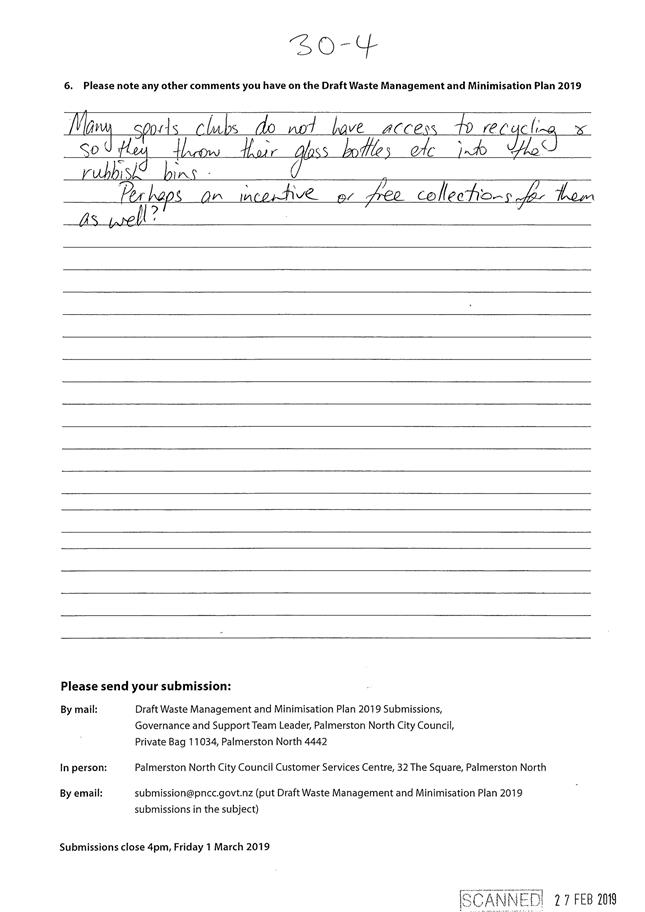 30-4
6. Please note any other comments you have on the Draft Waste Management and Minimisation Plan 2019
Many sports clubs do not have access to recycling &
so they throw their glass bottles etc into the
rubbish bins.
Perhaps an incentive or free collections for them
as well?
Please send your submission:
By mail: Draft Waste Management and Minimisation Plan 2019 Submissions,
Governance and Support Team Leader, Palmerston North City Council,
Private Bag 11034, Palmerston North 4442
In person: Palmerston North City Council Customer Services Centre, 32 The Square, Palmerston North
By email: submission@pncc.govt.nz (put Draft Waste Management and Minimisation Plan 2019
submissions in the subject)
Submissions close 4pm, Friday 1 March 2019
SCANNED 27 FEB 2019